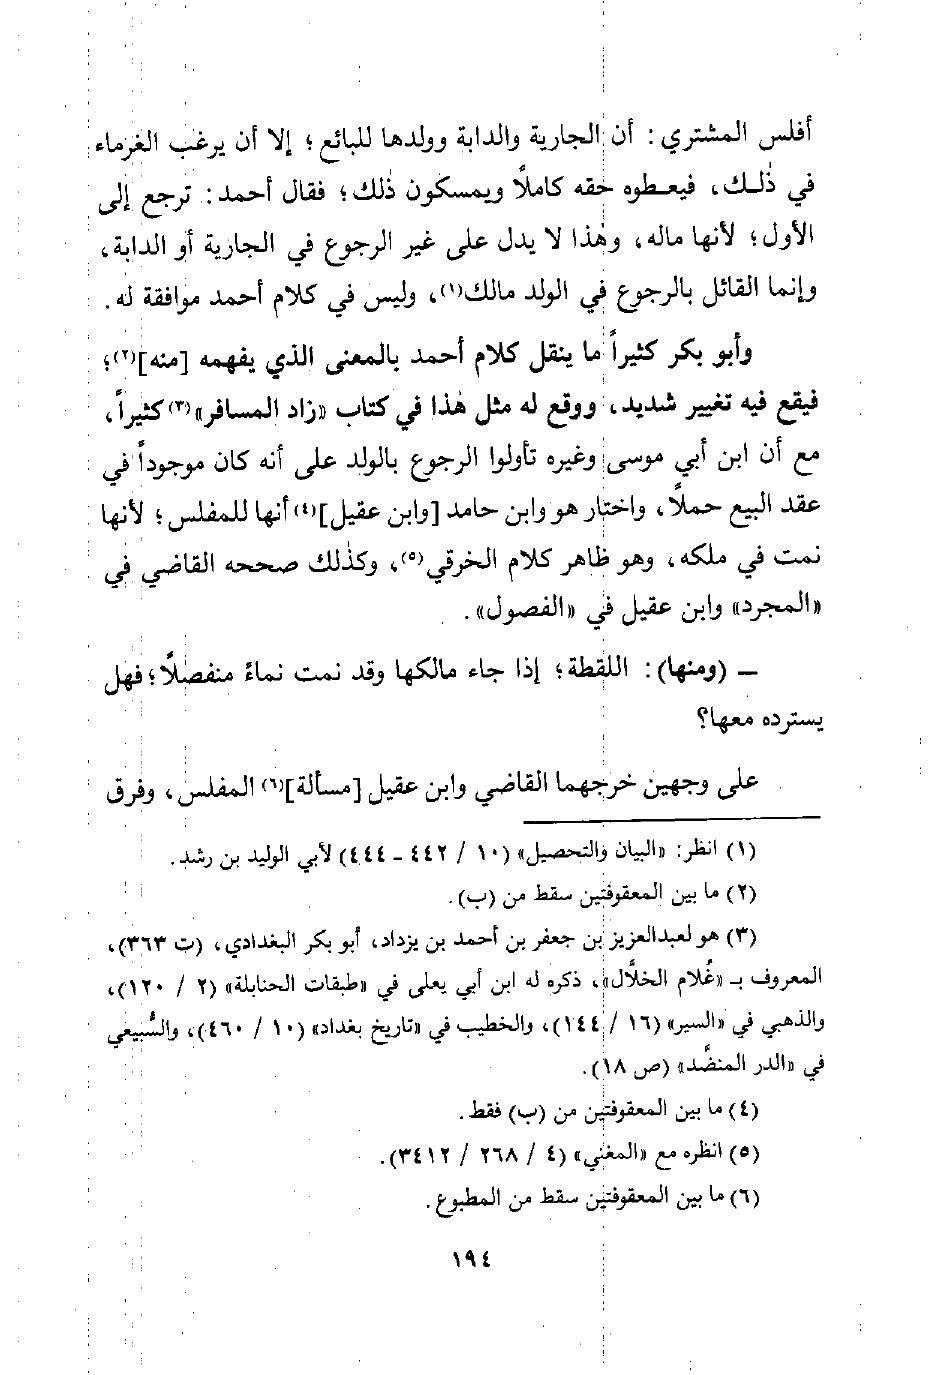 أفلس المشتري: أن الجارية والدابة وولدها للبائع؛ إلا أن يرغب الغرماء
في ذٰلـك، فيعـطوه حقه كاملًا ويمسكون ذٰلك؛ فقال أحمد: ترجع إلى
الأول؛ لأنها ماله، وهٰذا لا يدل على غير الرجوع في الجارية أو الدابة،
وإنما القائل بالرجوع في الولد مالك(١)، وليس في كلام أحمد موافقة له.
وأبو بكر كثيراً ما ينقل كلام أحمد بالمعنى الذي يفهمه [منه](٢)؛
فيقع فيه تغيير شديد، ووقع له مثل هٰذا في كتاب «زاد المسافر»(٣) كثيراً،
مع أن ابن أبي موسى وغيره تأولوا الرجوع بالولد على أنه كان موجوداً في
عقد البيع حملًا، واختار هو وابن حامد [وابن عقيل](٤) أنها للمفلس؛ لأنها
نمت في ملكه، وهو ظاهر كلام الخرقي(٥)، وكذٰلك صححه القاضي في
«المجرد» وابن عقيل في «الفصول».
ــ (ومنها): اللقطة؛ إذا جاء مالكها وقد نمت نماءً منفصلًا؛ فهل
يسترده معها؟
على وجهين خرجهما القاضي وابن عقيل [مسألة](٦) المفلس، وفرق
(١) انظر: «البيان والتحصيل» (١٠ / ٤٤٢ ـ ٤٤٤) لأبي الوليد بن رشد.
(٢) ما بين المعقوفتين سقط من (ب).
(٣) هو لعبدالعزيز بن جعفر بن أحمد بن يزداد، أبو بكر البغدادي، (ت ٣٦٣)،
المعروف بـ «غُلام الخلَّال»، ذكره له ابن أبي يعلى في «طبقات الحنابلة» (٢ / ١٢٠)،
والذهبي في «السير» (١٦ / ١٤٤)، والخطيب في «تاريخ بغداد» (١٠ / ٤٦٠)، والسُّبيعي
في «الدر المنضَّد» (ص ١٨).
(٤) ما بين المعقوفتين من (ب) فقط.
(٥) انظره مع «المغني» (٤ / ٢٦٨ / ٣٤١٢).
(٦) ما بين المعقوفتين سقط من المطبوع.
١٩٤